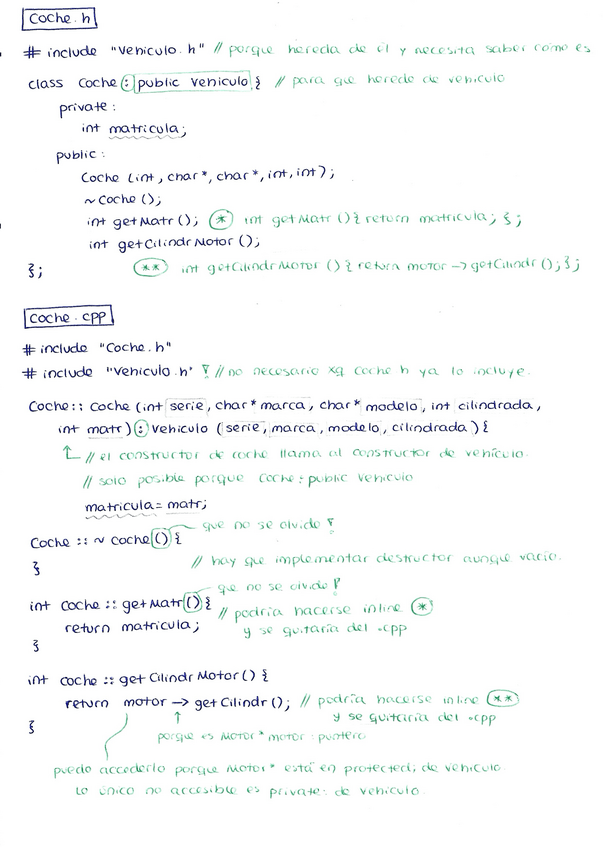 Coche.h
# include "Vehiculo.h" // porque hereda de él y necesita saber cómo es
class Coche : public Vehiculo { // para que herede de vehiculo
private:
int matricula;
public:
Coche (int, char*, char*, int, int);
~Coche ();
int getMatr (); (*) int getMatr () { return matricula; };
int getCilindrMotor ();
}; (**) int getCilindrMotor () { return motor -> getCilindr (); };
Coche.cpp
# include "Coche.h"
# include "Vehiculo.h" ! // no necesario xq coche h ya lo incluye.
Coche:: Coche (int serie, char* marca, char* modelo, int cilindrada,
int matr) : Vehiculo (serie, marca, modelo, cilindrada) {
↑ // el constructor de coche llama al constructor de vehículo.
// solo posible porque Coche: public Vehiculo
matricula = matr;
que no se olvide !
Coche :: ~ Coche () {
// hay que implementar destructor aunque vacío.
}
que no se olvide !
int Coche :: getMatr () { // podría hacerse inline (*)
return matricula; y se quitaría del .cpp
}
int coche :: getCilindrMotor () {
return motor -> getCilindr (); // podría hacerse inline (**)
↑ y se quitaría del .cpp
}
porque es Motor* motor : puntero
puedo accederlo porque Motor* está en protected: de vehiculo.
Lo único no accesible es private: de vehiculo.